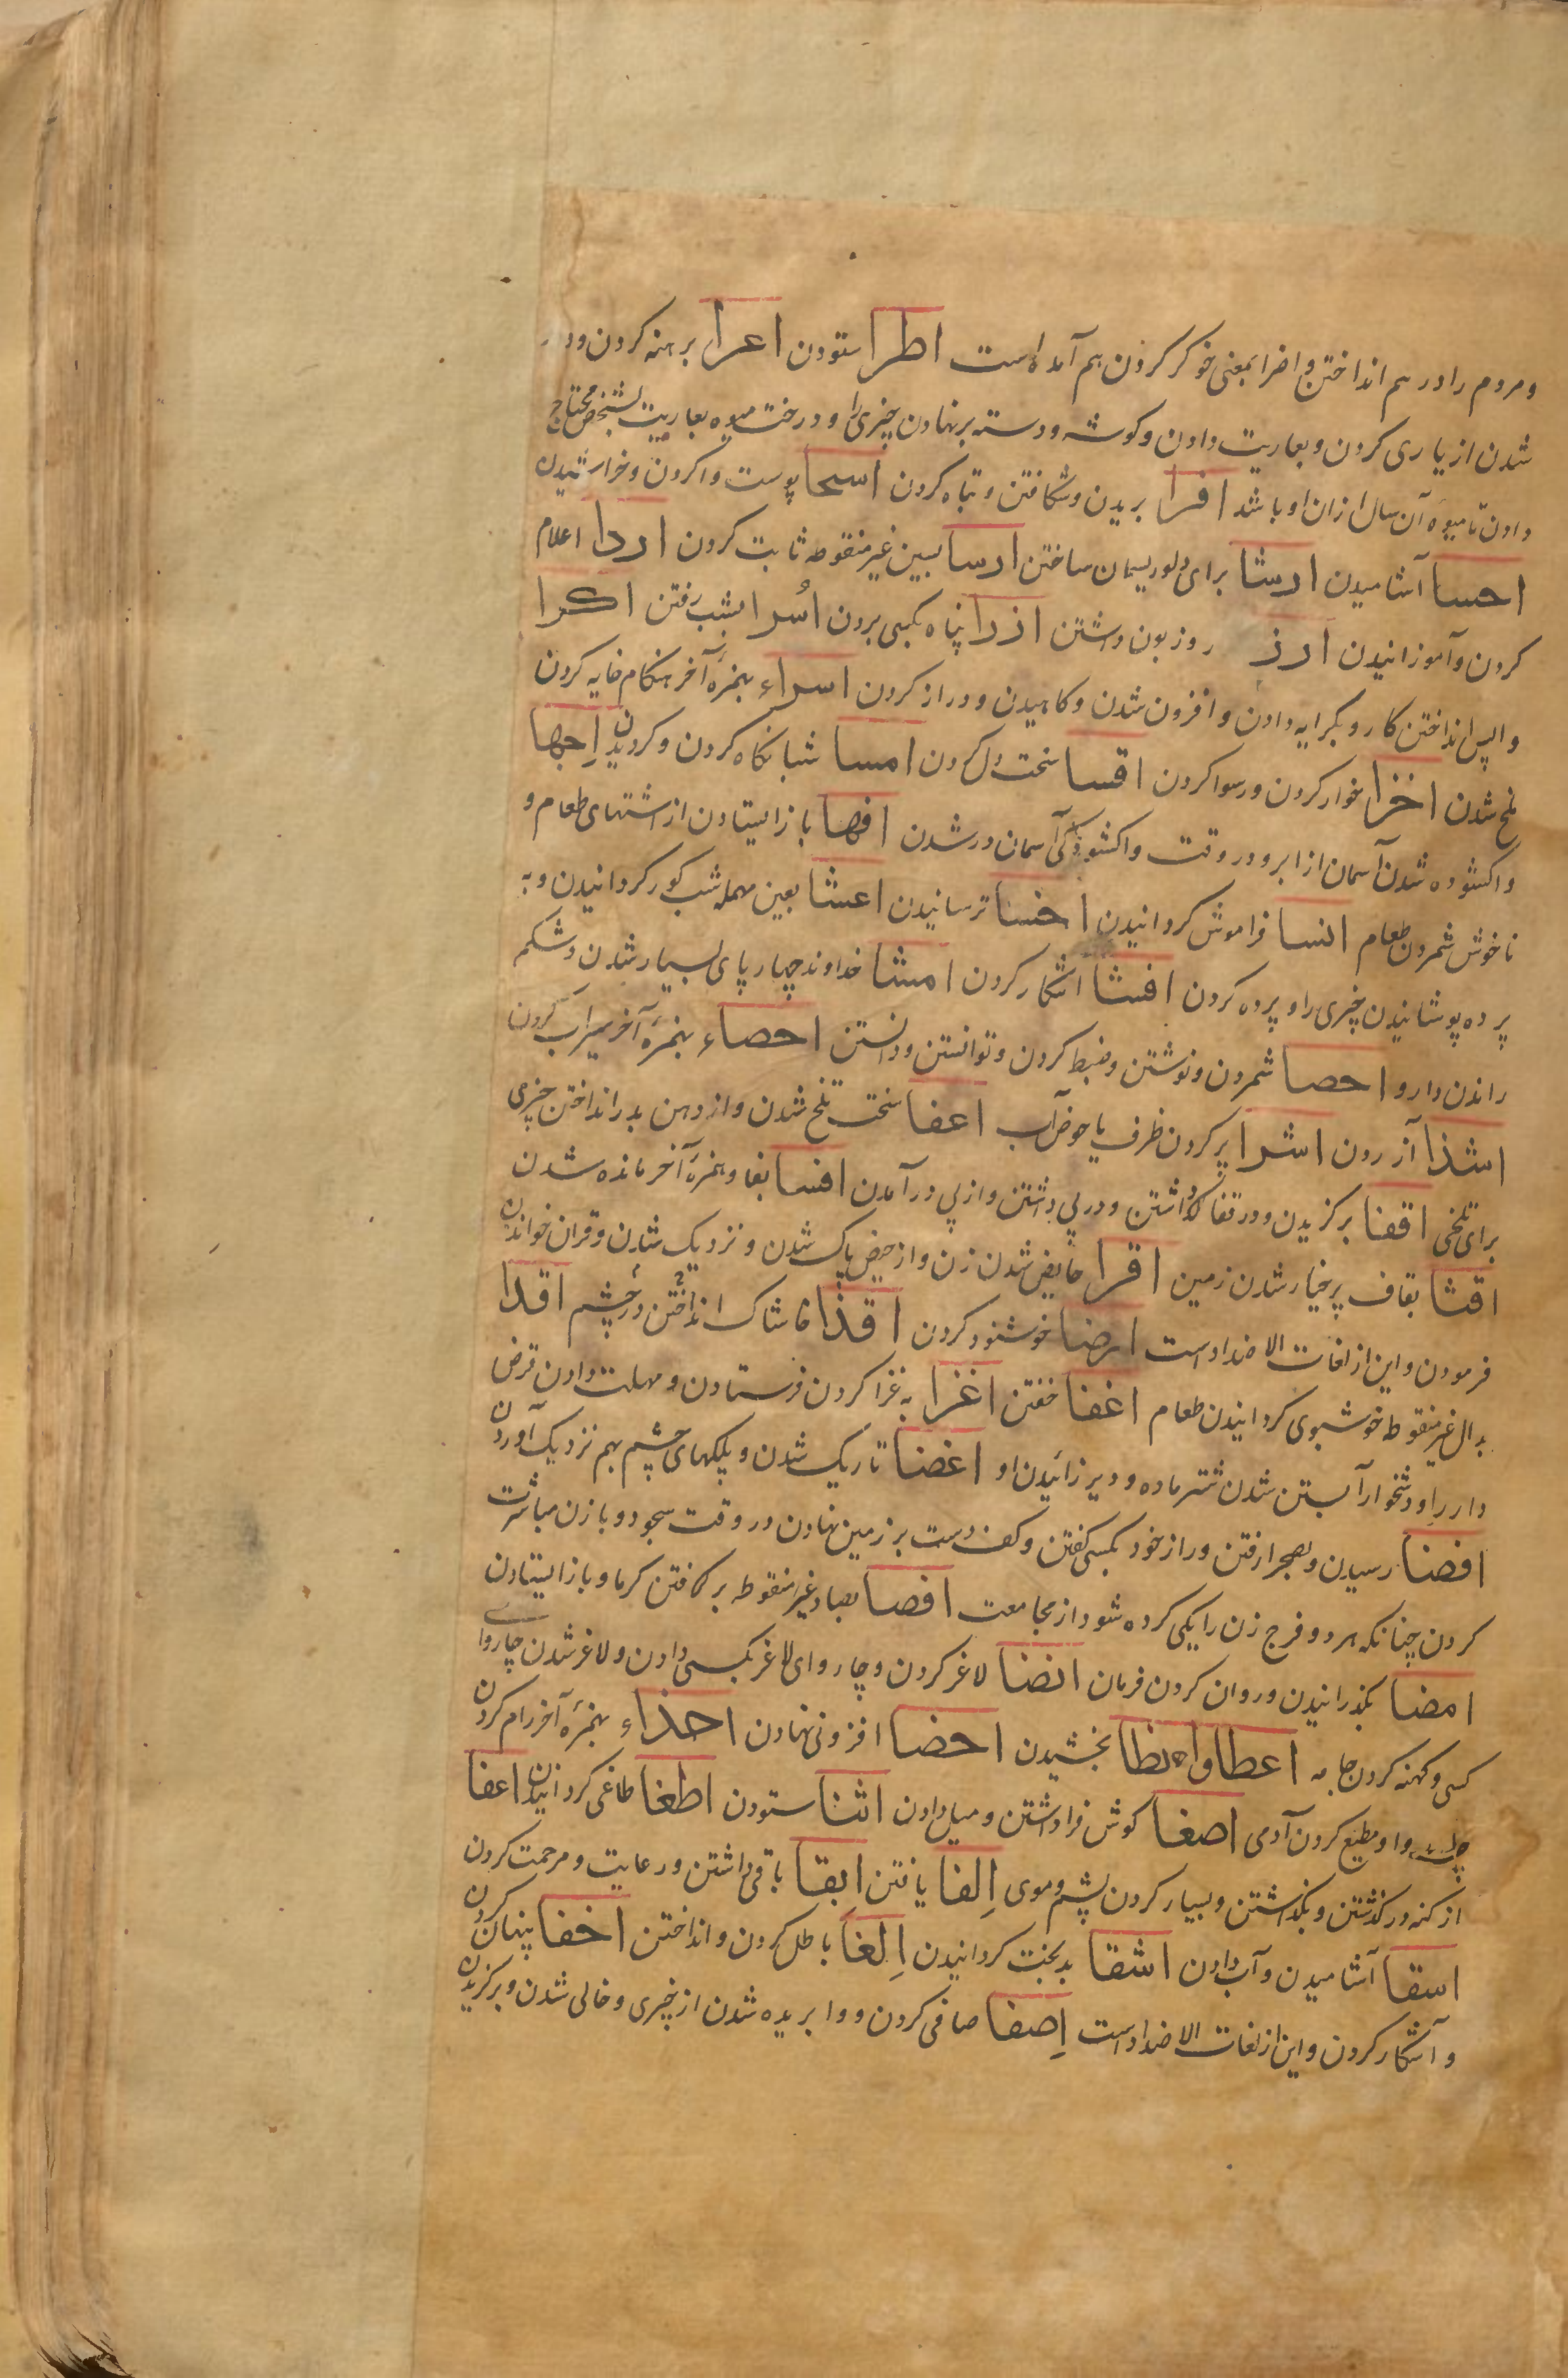 ومردم را درهم انداختن و اضرا بمعنی خوگر کردن هم آمده است اطرا ستودن اعرا برهنه کردن و
شدن از یاری کردن و بعاریت دادن و گوشه و دسته برنهادن چیزی را و درخت میوه بعاریت بشخص محتاج
دادن تا میوه آن سال ازان او باشد افرا بریدن و شکافتن و تباه کردن اسحا پوست واکردن و خراشیدن
احسا آشامیدن ارشا برای دلو ریسمان ساختن ارسا بسین غیر منقوطه ثابت کردن ادرا اعلام
کردن و آموزانیدن ارز و زبون داشتن اذرا پناه بکسی بردن اُسرا بشب رفتن اکرا
واپس انداختن کار و بکرایه دادن و افزون شدن و کاهیدن و دراز کردن اسراء بهمزهٔ آخر هنکام خایه کردن
ملخ شدن اخزا خوار کردن و رسوا کردن اقسا سخت دل کردن امسا شبانکاه کردن و کردیدن اِجها
واکشوده شدن آسمان از ابر و در وقت واکشودکی آسمان در شدن افها باز ایستادن از اشتهای طعام و
ناخوش شمردن طعام انسا فراموش کردانیدن اخسا ترسانیدن اعشا بعین مهمله شب کور کردانیدن و به
پرده پوشانیدن چیزی را و پرده کردن افشا اشکار کردن امشا خداوند چهارپای بسیار شدن و شکم
راندن دارو احصا شمردن و نوشتن و ضبط کردن و توانستن و دانستن احصاء بهمزهٔ آخر سیراب کردن
اشذا آزردن اشرا پر کردن ظرف یا حوض آب اعفا سخت تلخ شدن و از دهن بدر انداختن چیزی
برای تلخی اقفا برکزیدن و در قفا کذاشتن و در پی داشتن و از پی در آمدن افسا بفا و همزهٔ آخر مانده شدن
اقثا بقاف پر خیار شدن زمین اقرا حایض شدن زن و از حیض پاک شدن و نزدیک شدن و قران خواندن
فرمودن و این از لغات الاضداد است ارضا خوشنود کردن اقذا خاشاک انداختن در چشم اقدا
بدال غیر منقوطه خوشبوی کردانیدن طعام اغفا خفتن اغزا به غزا کردن فرستادن و مهلت دادن قرض
دار را و دشخوار آبستن شدن شتر ماده و دیر زائیدن او اغضا تاریک شدن و پلکهای چشم بهم نزدیک آوردن
افضا رسیدن و بصحرا رفتن و راز خود بکسی کفتن و کف دست بر زمین نهادن در وقت سجود و با زن مباشرت
کردن چنانکه هر دو فرج زن را یکی کرده شود از مجامعت افصا بصاد غیر منقوطه بر کافتن کرما و باز ایستادن
امضا بکذرانیدن و روان کردن فرمان انضا لاغر کردن و چاروای لاغر بکسی دادن و لاغر شدن چاروای
کسی و کهنه کردن جامه اعطا و انطا بخشیدن احضا افزونی نهادن احذاء بهمزهٔ آخر رام کردن
وا و مطیع کردن آدمی اصغا کوش فرا داشتن و میل دادن اثنا ستودن اطغا طاغی کردانیدن اعفا
از کنه درکذشتن و بکذاشتن و بسیار کردن پشم و موی اِلفا یافتن اَبقا باقی داشتن و رعایت و مرحمت کردن
اسقا آشامیدن و آب دادن اشقا بدبخت کردانیدن اِلغا باطل کردن و انداختن اخفا پنهان کردن
و آشکار کردن و این از لغات الاضداد است اِصفا صافی کردن و وا بریده شدن از چیزی و خالی شدن و برکزیدن